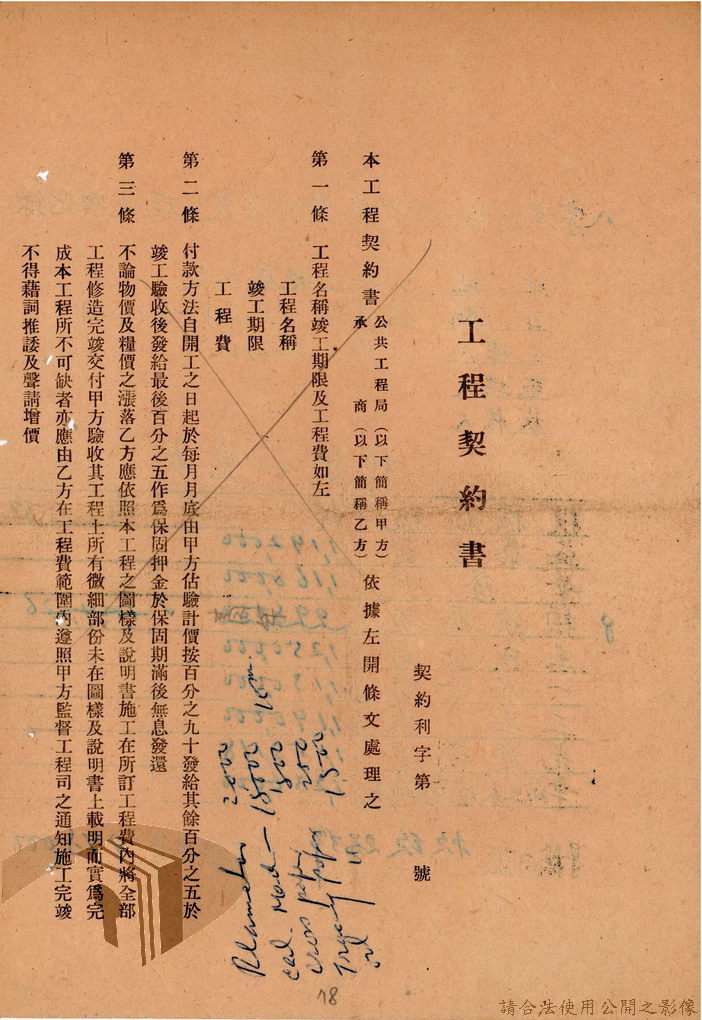 工程契約書
契約利字第　　號
本工程契約書
公共工程局（以下簡稱甲方）
承　　　商（以下簡稱乙方）
依據左開條文處理之
第一條　工程名稱竣工期限及工程費如左
工程名稱
竣工期限
工程費
第二條　付款方法自開工之日起於每月月底由甲方估驗計價按百分之九十發給其餘百分之五於
竣工驗收後發給最後百分之五作爲保固押金於保固期滿後無息發還
第三條　不論物價及糧價之漲落乙方應依照本工程之圖樣及說明書施工在所訂工程費內將全部
工程修造完竣交付甲方驗收其工程上所有微細部份未在圖樣及說明書上載明而實爲完
成本工程所不可缺者亦應由乙方在工程費範圍內遵照甲方監督工程司之通知施工完竣
不得藉詞推諉及聲請增價
2000
cal. Road — 15000
1500
cross paper 200
Tracing paper 1500
18
請合法使用公開之影像